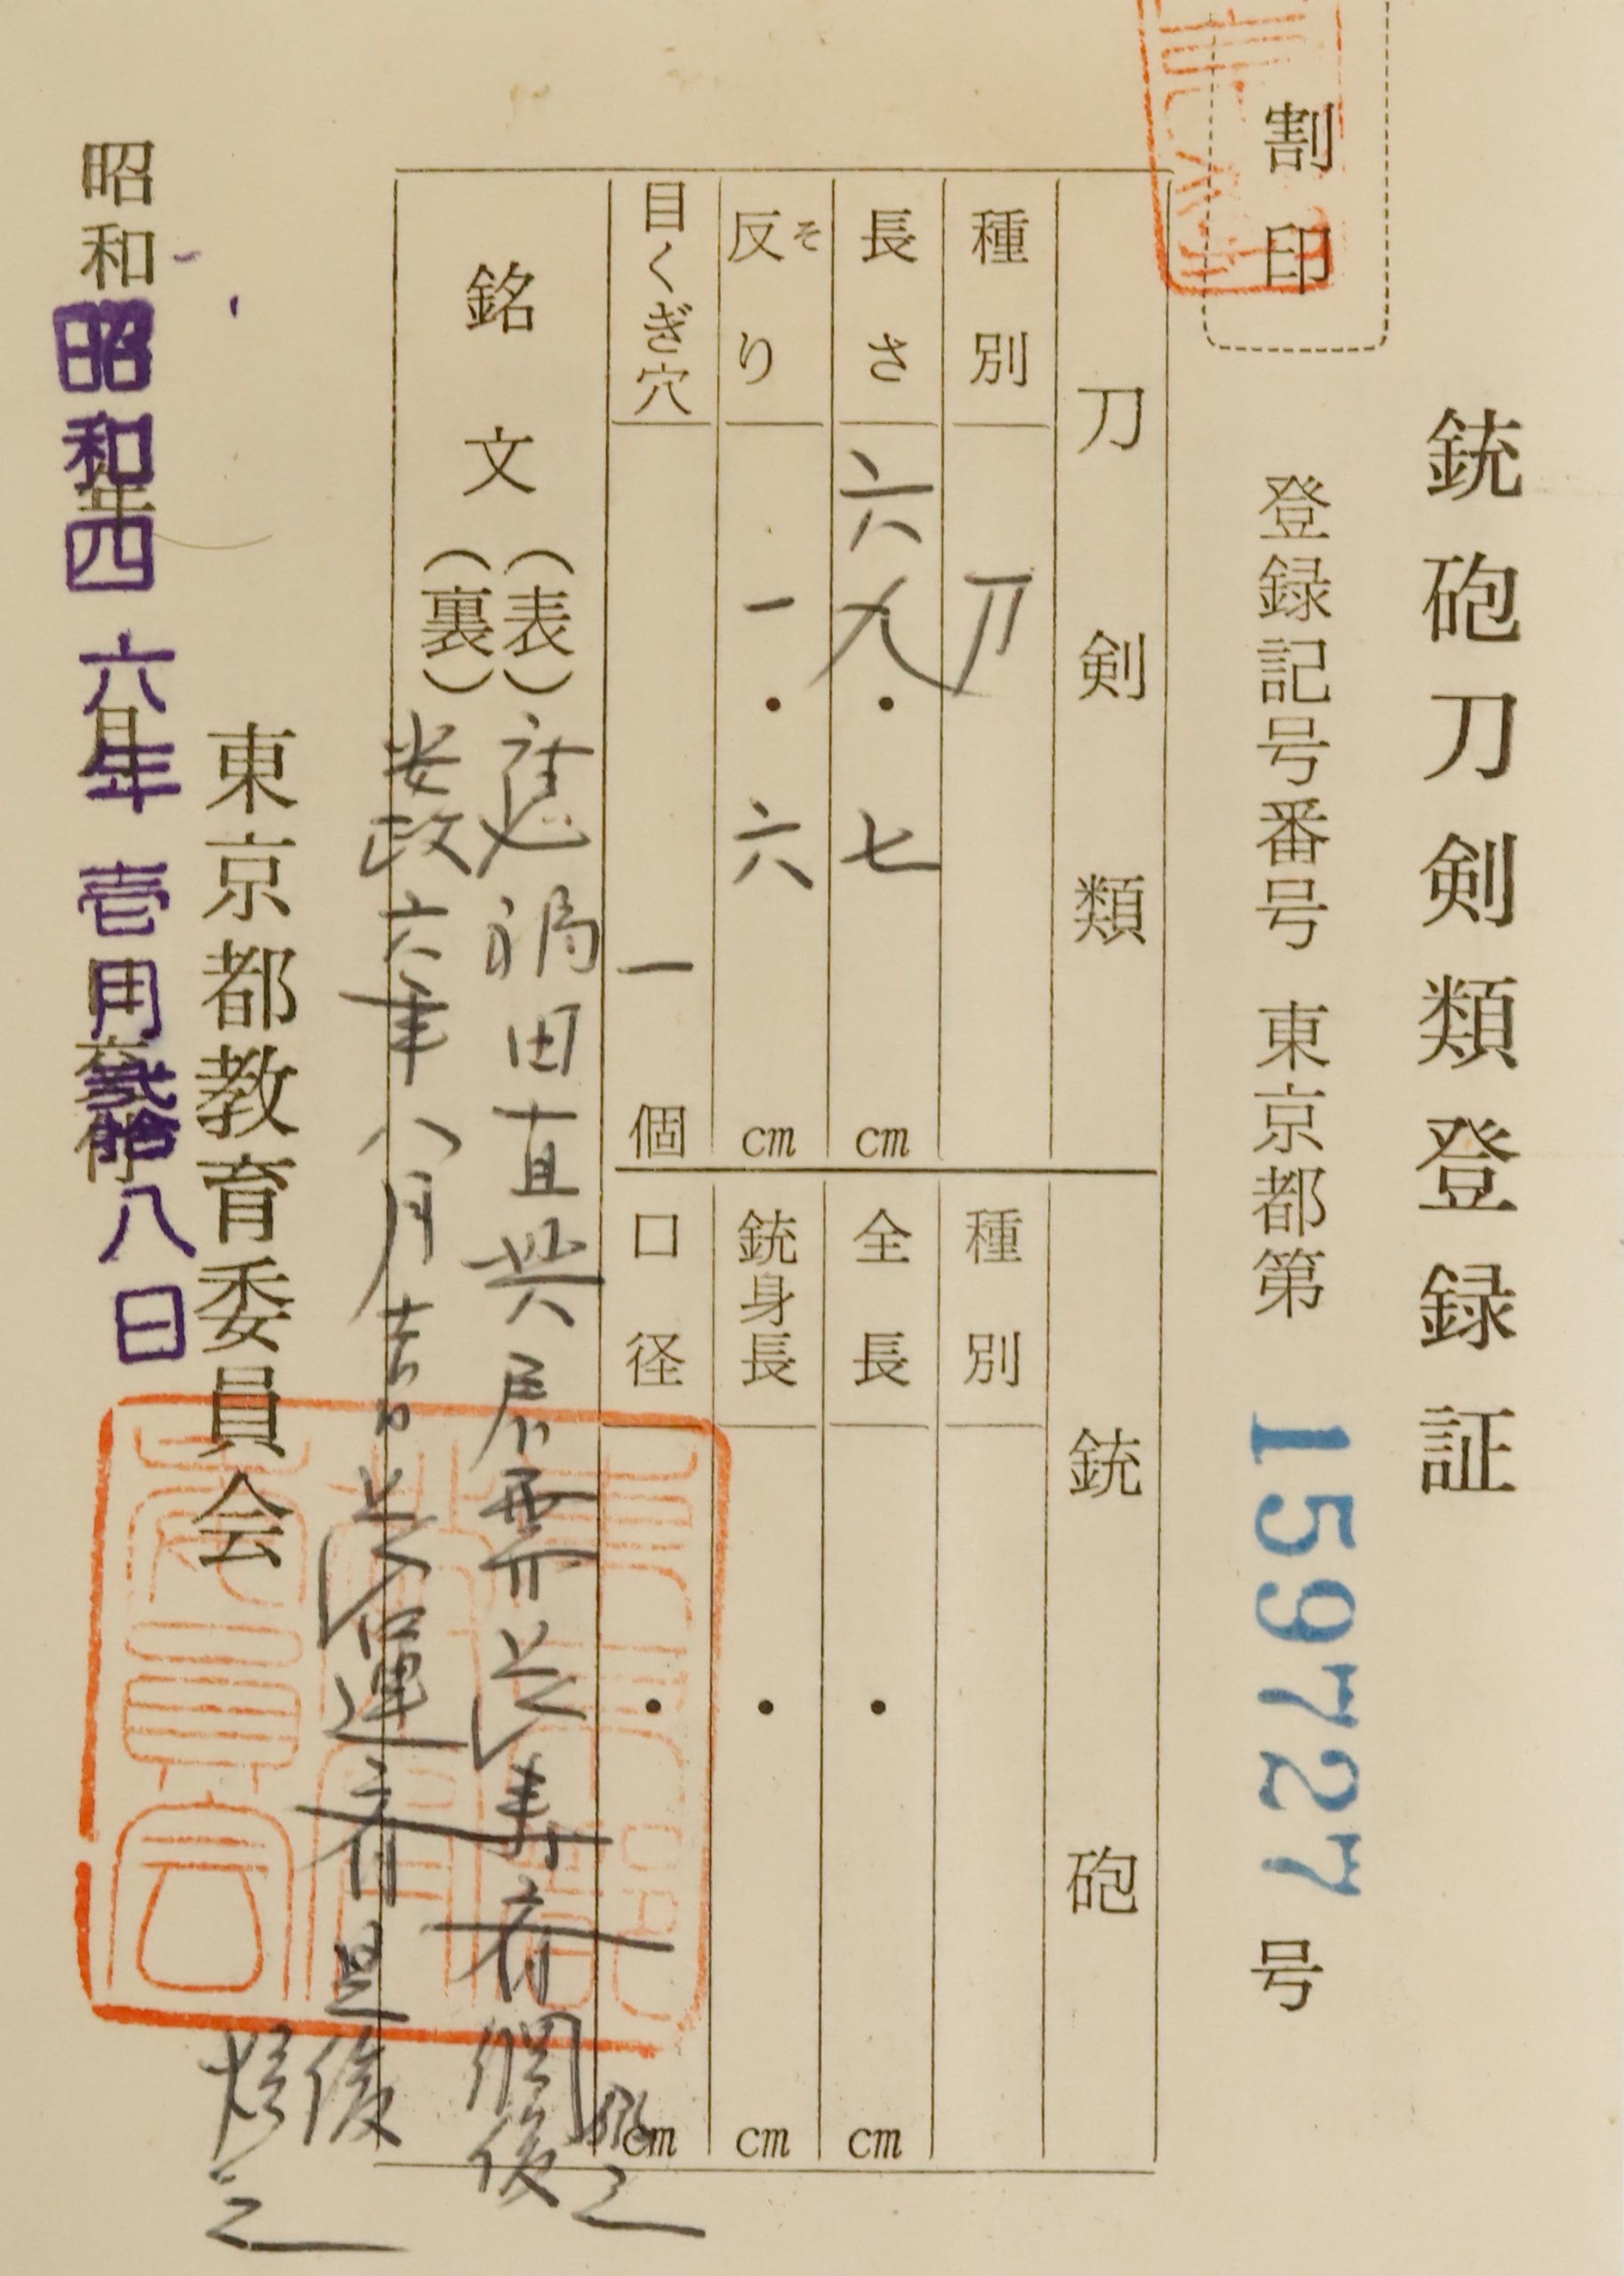 銃砲刀剣類登録証
割印
登録記号番号 東京都第 159727 号
刀剣類
種別 刀
長さ 六九・七 cm
反り そ 一・六 cm
目くぎ穴 一 個
銃砲
種別
全長 ・ cm
銃身長 ・ cm
口径 ・ cm
銘文
(表) 應 田直興 需長寿斎綱俊 之
(裏) 安政六年八月吉日長運斎是俊 之
東京都教育委員会
昭和 年 月 交付
昭和四六年壱月弐拾八日